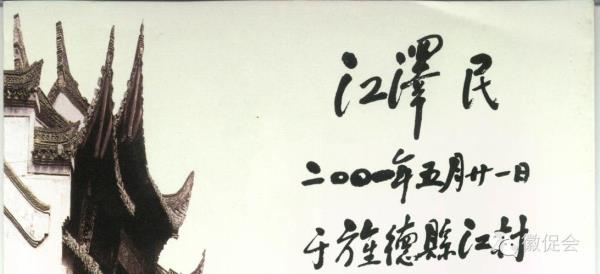 江澤民
二〇〇一年五月廿一日
于旌德縣江村
徽促会